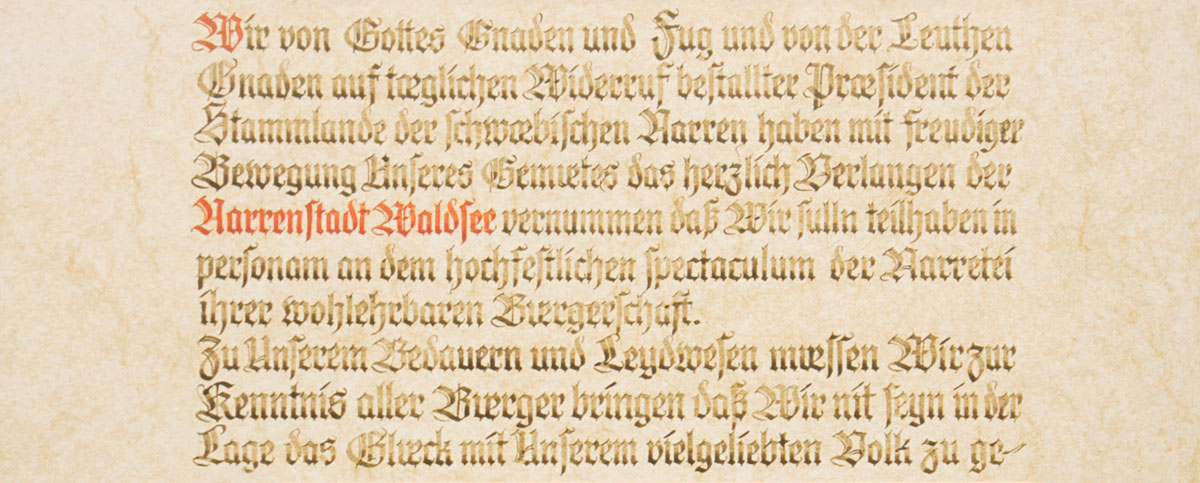 Wir von Gottes Gnaden und Fug und von der Leuthen
Gnaden auf tæglichen Widerruf bestallter Præsident der
Stammlande der schwæbischen Narren haben mit freudiger
Bewegung Unseres Gemuetes das herzlich Verlangen der
Narrenstadt Waldsee vernummen daß Wir sulln teilhaben in
personam an dem hochfestlichen spectaculum der Narretei
ihrer wohlehrbaren Buergerschaft.
Zu Unserem Bedauern und Leydwesen mœssen Wir zur
Kenntnis aller Buerger bringen daß Wir nit seyn in der
Lage das Glueck mit Unserem vielgeliebten Volk zu ge-